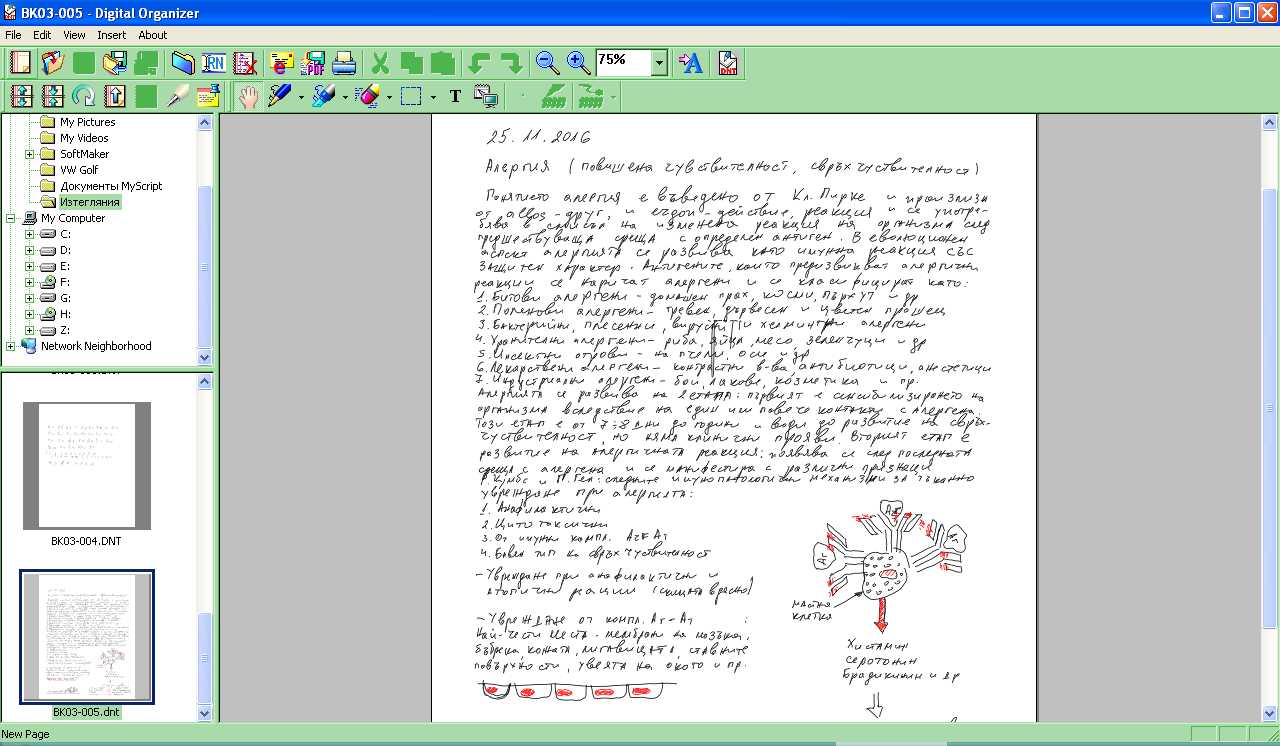 BK03-005 - Digital Organizer
File Edit View Insert About
RN e PDF 75% A DNT
T
My Pictures
My Videos
SoftMaker
VW Golf
Документы MyScript
Изтегляния
My Computer
C:
D:
E:
F:
G:
H:
Z:
Network Neighborhood
BK03-004.DNT
BK03-005.dnt
New Page
25.11.2016
Алергия (повишена чувствителност, свръхчуствителност)
Понятието алергия е въведено от Кл. Пирке и произлиза
от allos - друг, и ergon - действие, реакция и се употре-
бява в смисъл на изменена реакция на организма след
предшествуваща среща с определен антиген. В еволюционен
аспект алергията се развива като имунна реакция със
защитен характер. Антигените, които предизвикват алергични
реакции се наричат алергени и се класифицират като:
1. Битови алергени - домашен прах, косми, пърхут и др
2. Поленови алергени - тревен, дървесен и цветен прашец
3. Бактерийни, плесенни, вирусни и хелминтни алергени
4. Хранителни алергени - риба, яйца, месо, зеленчуци и др
5. Инсектни отрови - на пчели, оси и др
6. Лекарствени алергени - контрастни в-ва, антибиотици, анестетици
7. Индустриални алергени - бои, лакове, козметика и пр.
Алергията се развива на 2 етапа: първият е сенсибилизирането на
организма вследствие на един или повече контакта с алергена.
Този етап е от 7-8 дни до години и води до развитие на свръх-
чуствителност, но няма клинични прояви. Вторият етап е
развитие на алергичната реакция: появява се след последната
среща с алергена и се манифестира с различни признаци
Р. Кумбс и П. Гел: следните имунопатологични механизми за тъканно
увреждане при алергията:
1. Анафилактични
2. Цитотоксични
3. От имунни компл. Аг Ат
4. Бавен тип на свръхчуствителност
- Увреждане при анафилактични и
атопични реакции
- Увреждане от компл. Аг-Ат
мембрани на мозъка
бъбреци, кожата, ставните
повърхности, увеята на окото и пр.
Аг
Аг
Аг
мастна
клетка
Хистамин
серотонин
брадикинин и др